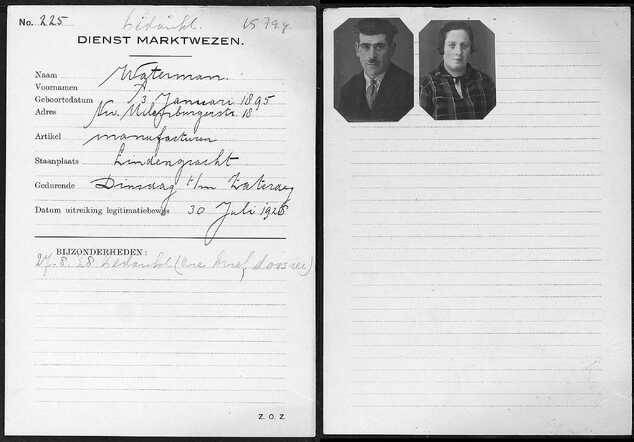 No. 225 bedankt. 
DIENST MARKTWEZEN.
Naam Waterman.
Voornamen
Geboortedatum 3 Januari 1895
Adres Nw. Uilenburgerstr. 18
Artikel manufacturen
Staanplaats Lindengracht
Gedurende Dinsdag t/m Zaterdag
Datum uitreiking legitimatiebewijs 30 Juli 1926
BIJZONDERHEDEN:
27.8.28 bedankt (zie brief dossier)
Z. O. Z.